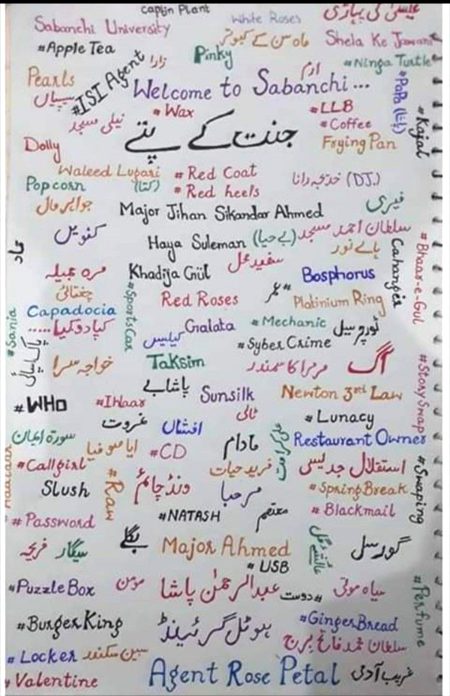 Caplin Plant
Sabanchi University
White Roses
#Apple Tea
زارا
Pinky
ماہ سن کے کبوتر
Shela Ke Jawani
#ISI Agent
ارم
#Ninga Tustle
Pearls
سیپیاں
Welcome to Sabanchi...
#PaPa (پاپا)
#Kajal
نیلی مسجد
#Wax
#LLB
#Coffee
Dolly
جنت کے پتے
Frying Pan
Waleed Lugari
#Red Coat
خدیجہ رانا (DJ.)
Popcorn
(کتا)
#Red heels
جواہر مال
Major Jihan Sikandar Ahmed
فیری
کفو یں
Haya Suleman (بے حیا)
سلطان احمد مسجد
سفید محل
ہالے نور
Cahangir
#Bhaar-e-Gul
Khadija Gül
Bosphorus
چغتائی
#Sports Car
Red Roses
عمر
Platinium Ring
#Sania
Capadocia
کپادوکیا.....
Galata
#Mechanic
ٹورو سیل
#Syber Crime
خواجہ سرا
Taksim
مرمرا کا سمندر
آگ
#Story Swap
پاشا بے
#WHO
#Ihaar
Sunsilk
Newton 3rd Law
ٹالی
#Lunacy
سورۃ ایمان
ایا صوفیا
غروت
افشاں
#CD
مادام
Restaurant Owner
#Callgirl
فرید حیات
استقلال جدیسی
#Swaping
Slush
#Raw
ونڈ چائم
مرحبا
#Spring Break
#Password
#NATASH
معتصم
#Blackmail
سیگار فریحہ
بگلے
Major Ahmed
عائشے گل
گورسل
#USB
#Puzzle Box
مومن
عبدالرحمٰن پاشا
#دوست
سیاہ موتی
#Perfume
#Burger King
ہوٹل گرینڈ
#GingerBread
# Locker
سبین سکندر
سلطان محمد فاتح برج
# Valentine
Agent Rose Petal
غریب آدمی